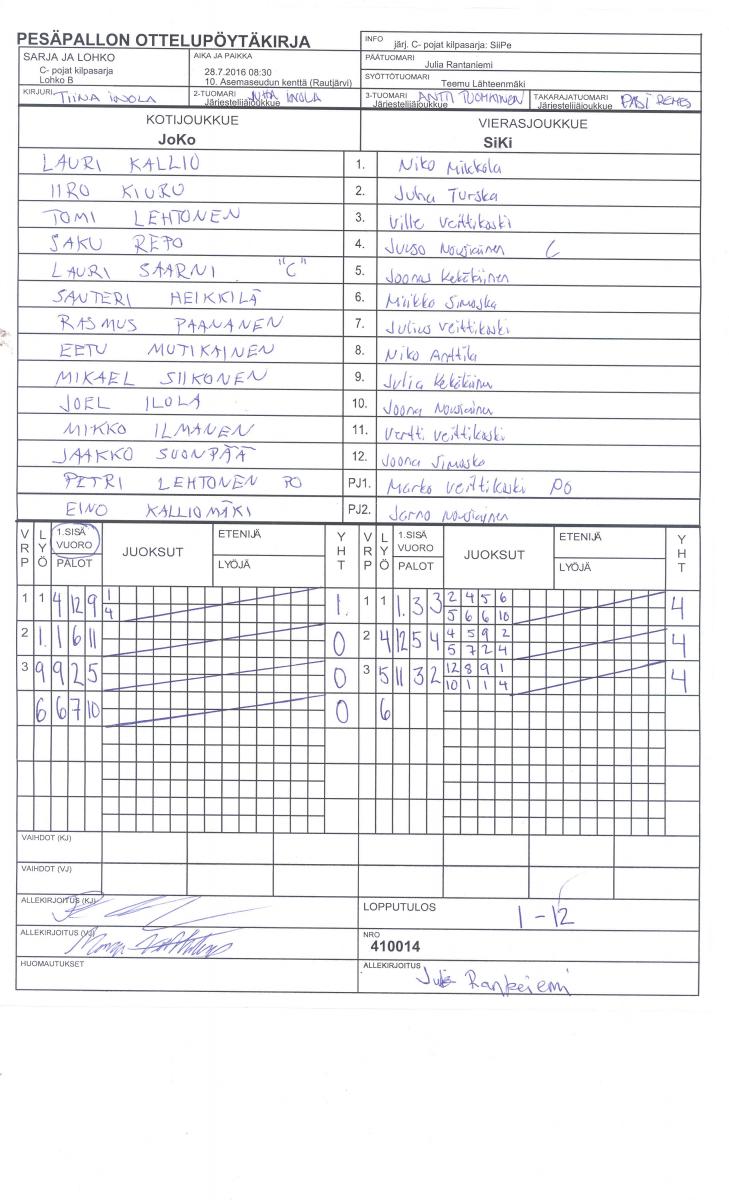 PESÄPALLON OTTELUPÖYTÄKIRJA
INFO järj. C- pojat kilpasarja: SiiPe
SARJA JA LOHKO
C- pojat kilpasarja
Lohko B
AIKA JA PAIKKA
28.7.2016 08:30
10. Asemaseudun kenttä (Rautjärvi)
PÄÄTUOMARI
Julia Rantaniemi
SYÖTTÖTUOMARI
Teemu Lähteenmäki
KIRJURI TIINA INOLA
2-TUOMARI JUHA INOLA
Järjestelijäjoukkue
3-TUOMARI ANTTI TUOHKINEN
Järjestelijäjoukkue
TAKARAJATUOMARI PASI REMES
Järjestelijäjoukkue
KOTIJOUKKUE
JoKo
VIERASJOUKKUE
SiKi
LAURI KALLIO 1. Niko Mikkola
IIRO KIURO 2. Juha Turska
TOMI LEHTONEN 3. Ville Veittikoski
SAKU REPO 4. Juuso Nousiainen C
LAURI SAARNI "C" 5. Joonas Kekäläinen
SANTERI HEIKKILÄ 6. Miikko Simaska
RASMUS PAANANEN 7. Julius Veittikoski
EETU MUTIKAINEN 8. Niko Anttila
MIKAEL SIIKONEN 9. Julia Kekäläinen
JOEL ILOLA 10. Joona Nousiainen
MIKKO ILMANEN 11. Vertti Veittikoski
JAAKKO SUONPÄÄ 12. Joona Simaska
PETRI LEHTONEN PO PJ1. Marko Veittikoski PO
EINO KALLIOMÄKI PJ2. Jarno Nousiainen
VRP LYÖ 1.SISÄ VUORO PALOT JUOKSUT ETENIJÄ LYÖJÄ YHT VRP LYÖ 1.SISÄ VUORO PALOT JUOKSUT ETENIJÄ LYÖJÄ YHT
1 1 4 12 9 1 1. 1 1 1. 3 3 2 4 5 6 4
4 5 6 6 10
2 1. 1 6 11 0 2 4 12 5 4 4 5 9 2 4
5 7 2 4
3 9 9 2 5 0 3 5 11 3 2 12 8 9 1 4
10 1 1 4
6 6 7 10 0 6
VAIHDOT (KJ)
VAIHDOT (VJ)
ALLEKIRJOITUS (KJ)
LOPPUTULOS 1 - 12
ALLEKIRJOITUS (VJ)
NRO
410014
HUOMAUTUKSET
ALLEKIRJOITUS